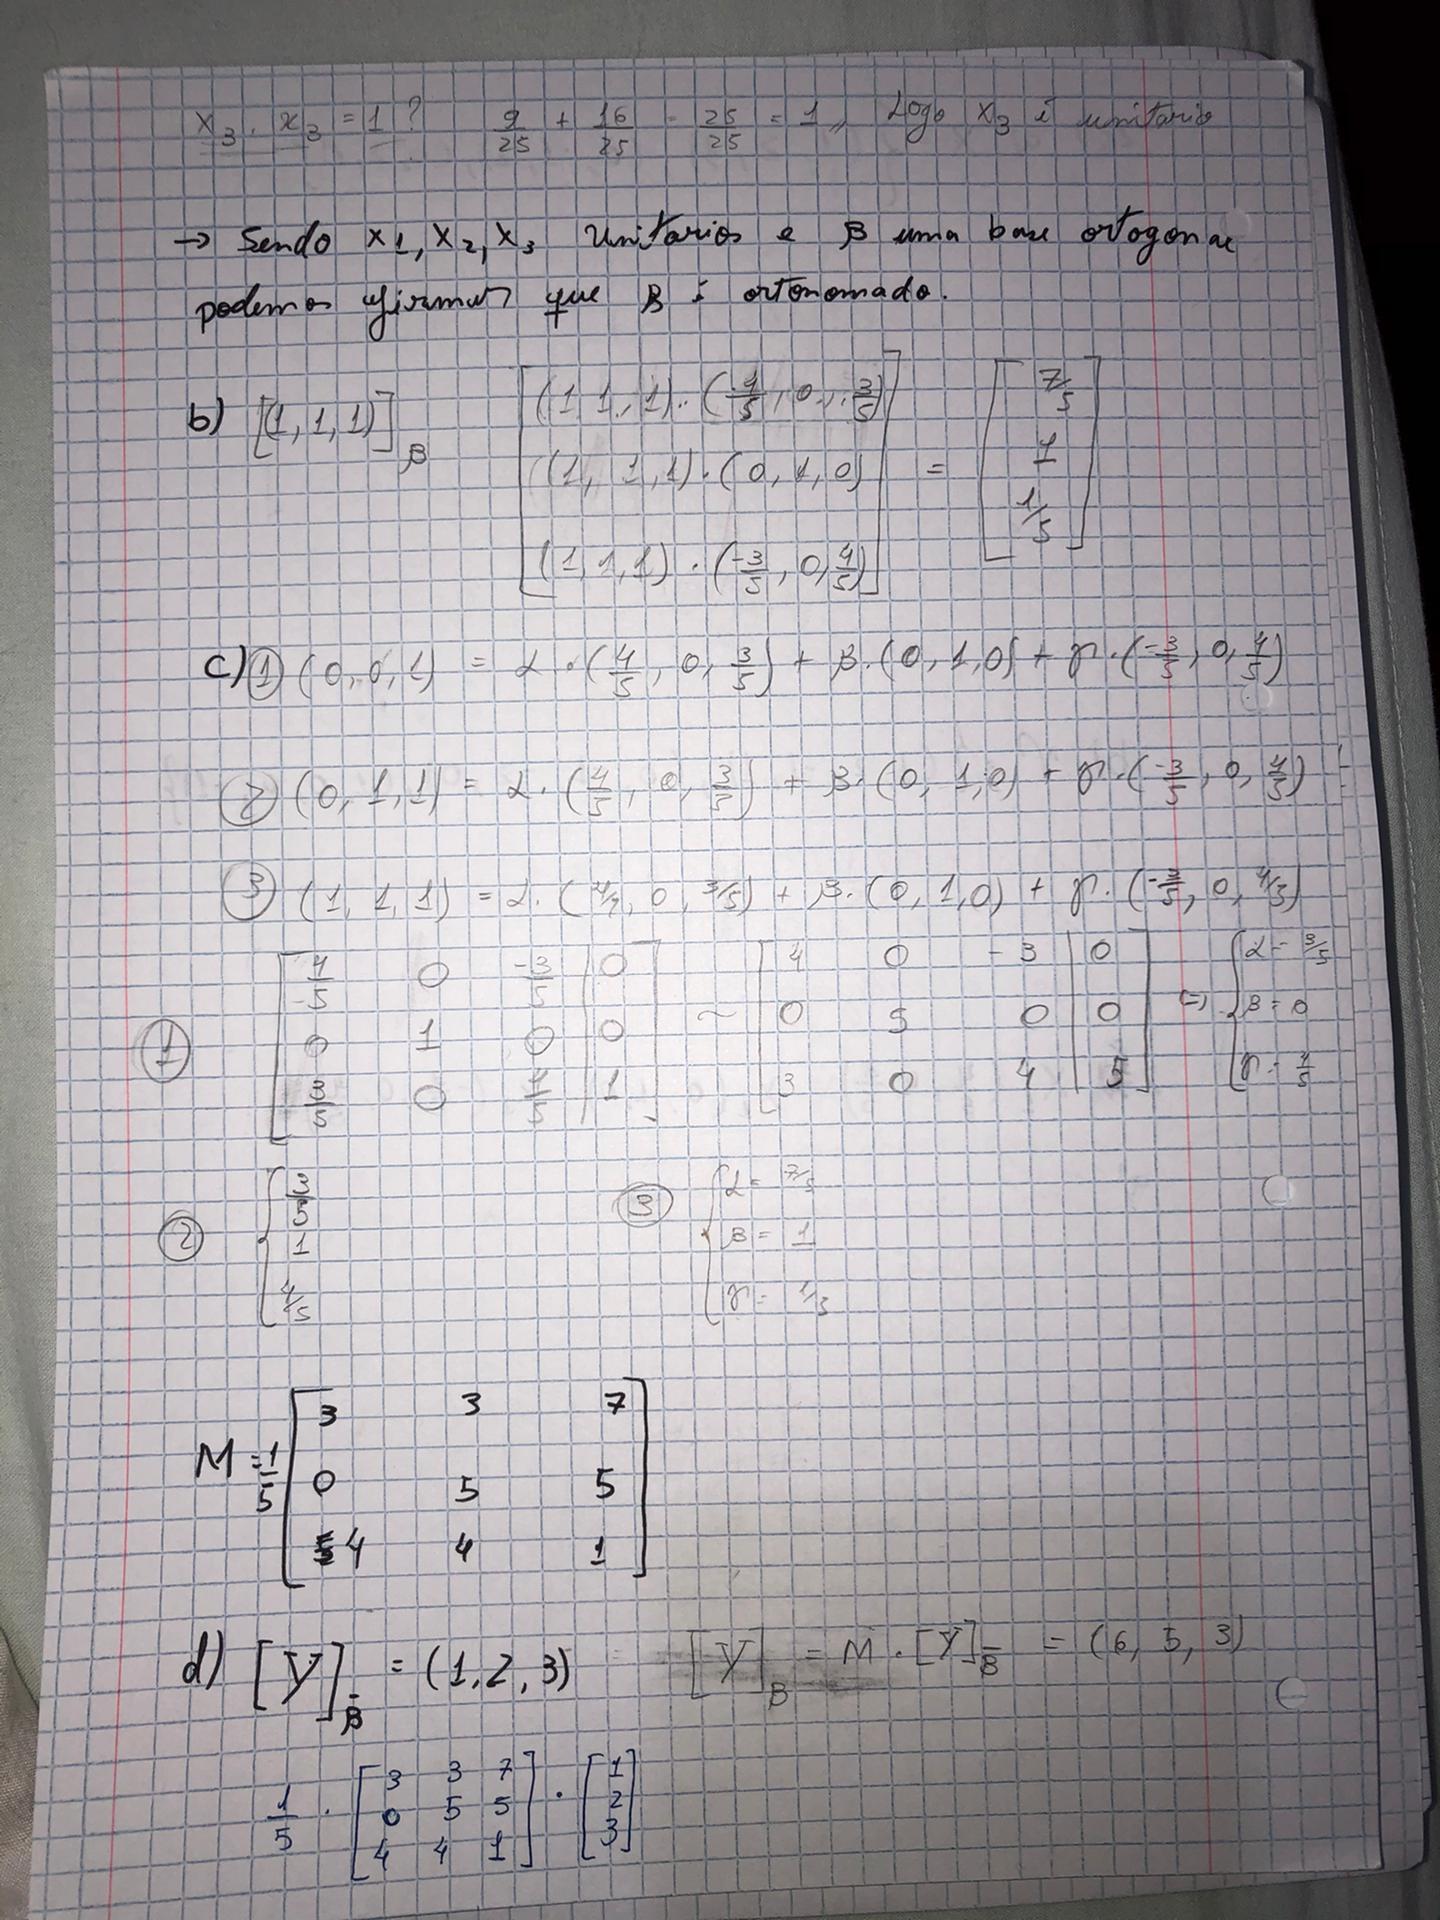 x₃ . x₃ = 1 ? 9/25 + 16/25 = 25/25 = 1 // Logo x₃ é unitario
→ Sendo x₁, x₂, x₃ Unitarios e β uma base ortogonal
podemos afirmar que β é ortonomado.
b) [(1,1,1)]β [(1,1,1)·(4/5, 0, 3/5) = [7/5
(1,1,1)·(0,1,0) 1
(1,1,1)·(-3/5, 0, 4/5)] 1/5]
c) ① (0,0,1) = α·(4/5, 0, 3/5) + β·(0,1,0) + γ·(-3/5, 0, 4/5)
② (0,1,1) = α·(4/5, 0, 3/5) + β·(0,1,0) + γ·(-3/5, 0, 4/5)
③ (1,1,1) = α·(4/5, 0, 3/5) + β·(0,1,0) + γ·(-3/5, 0, 4/5)
① [4/5 0 -3/5 | 0 ~ [4 0 -3 | 0 (=) {α = 3/5
0 1 0 | 0 0 5 0 | 0 β = 0
3/5 0 4/5 | 1] 3 0 4 | 5] γ = 4/5
② {3/5 ③ {α = 7/5
1 β = 1
4/5 γ = 1/5
M = 1/5 [3 3 7
0 5 5
4 4 1]
d) [y]β̄ = (1,2,3) [y]β = M · [y]β̄ = (6, 5, 3)
1/5 · [3 3 7 · [1
0 5 5 2
4 4 1] 3]